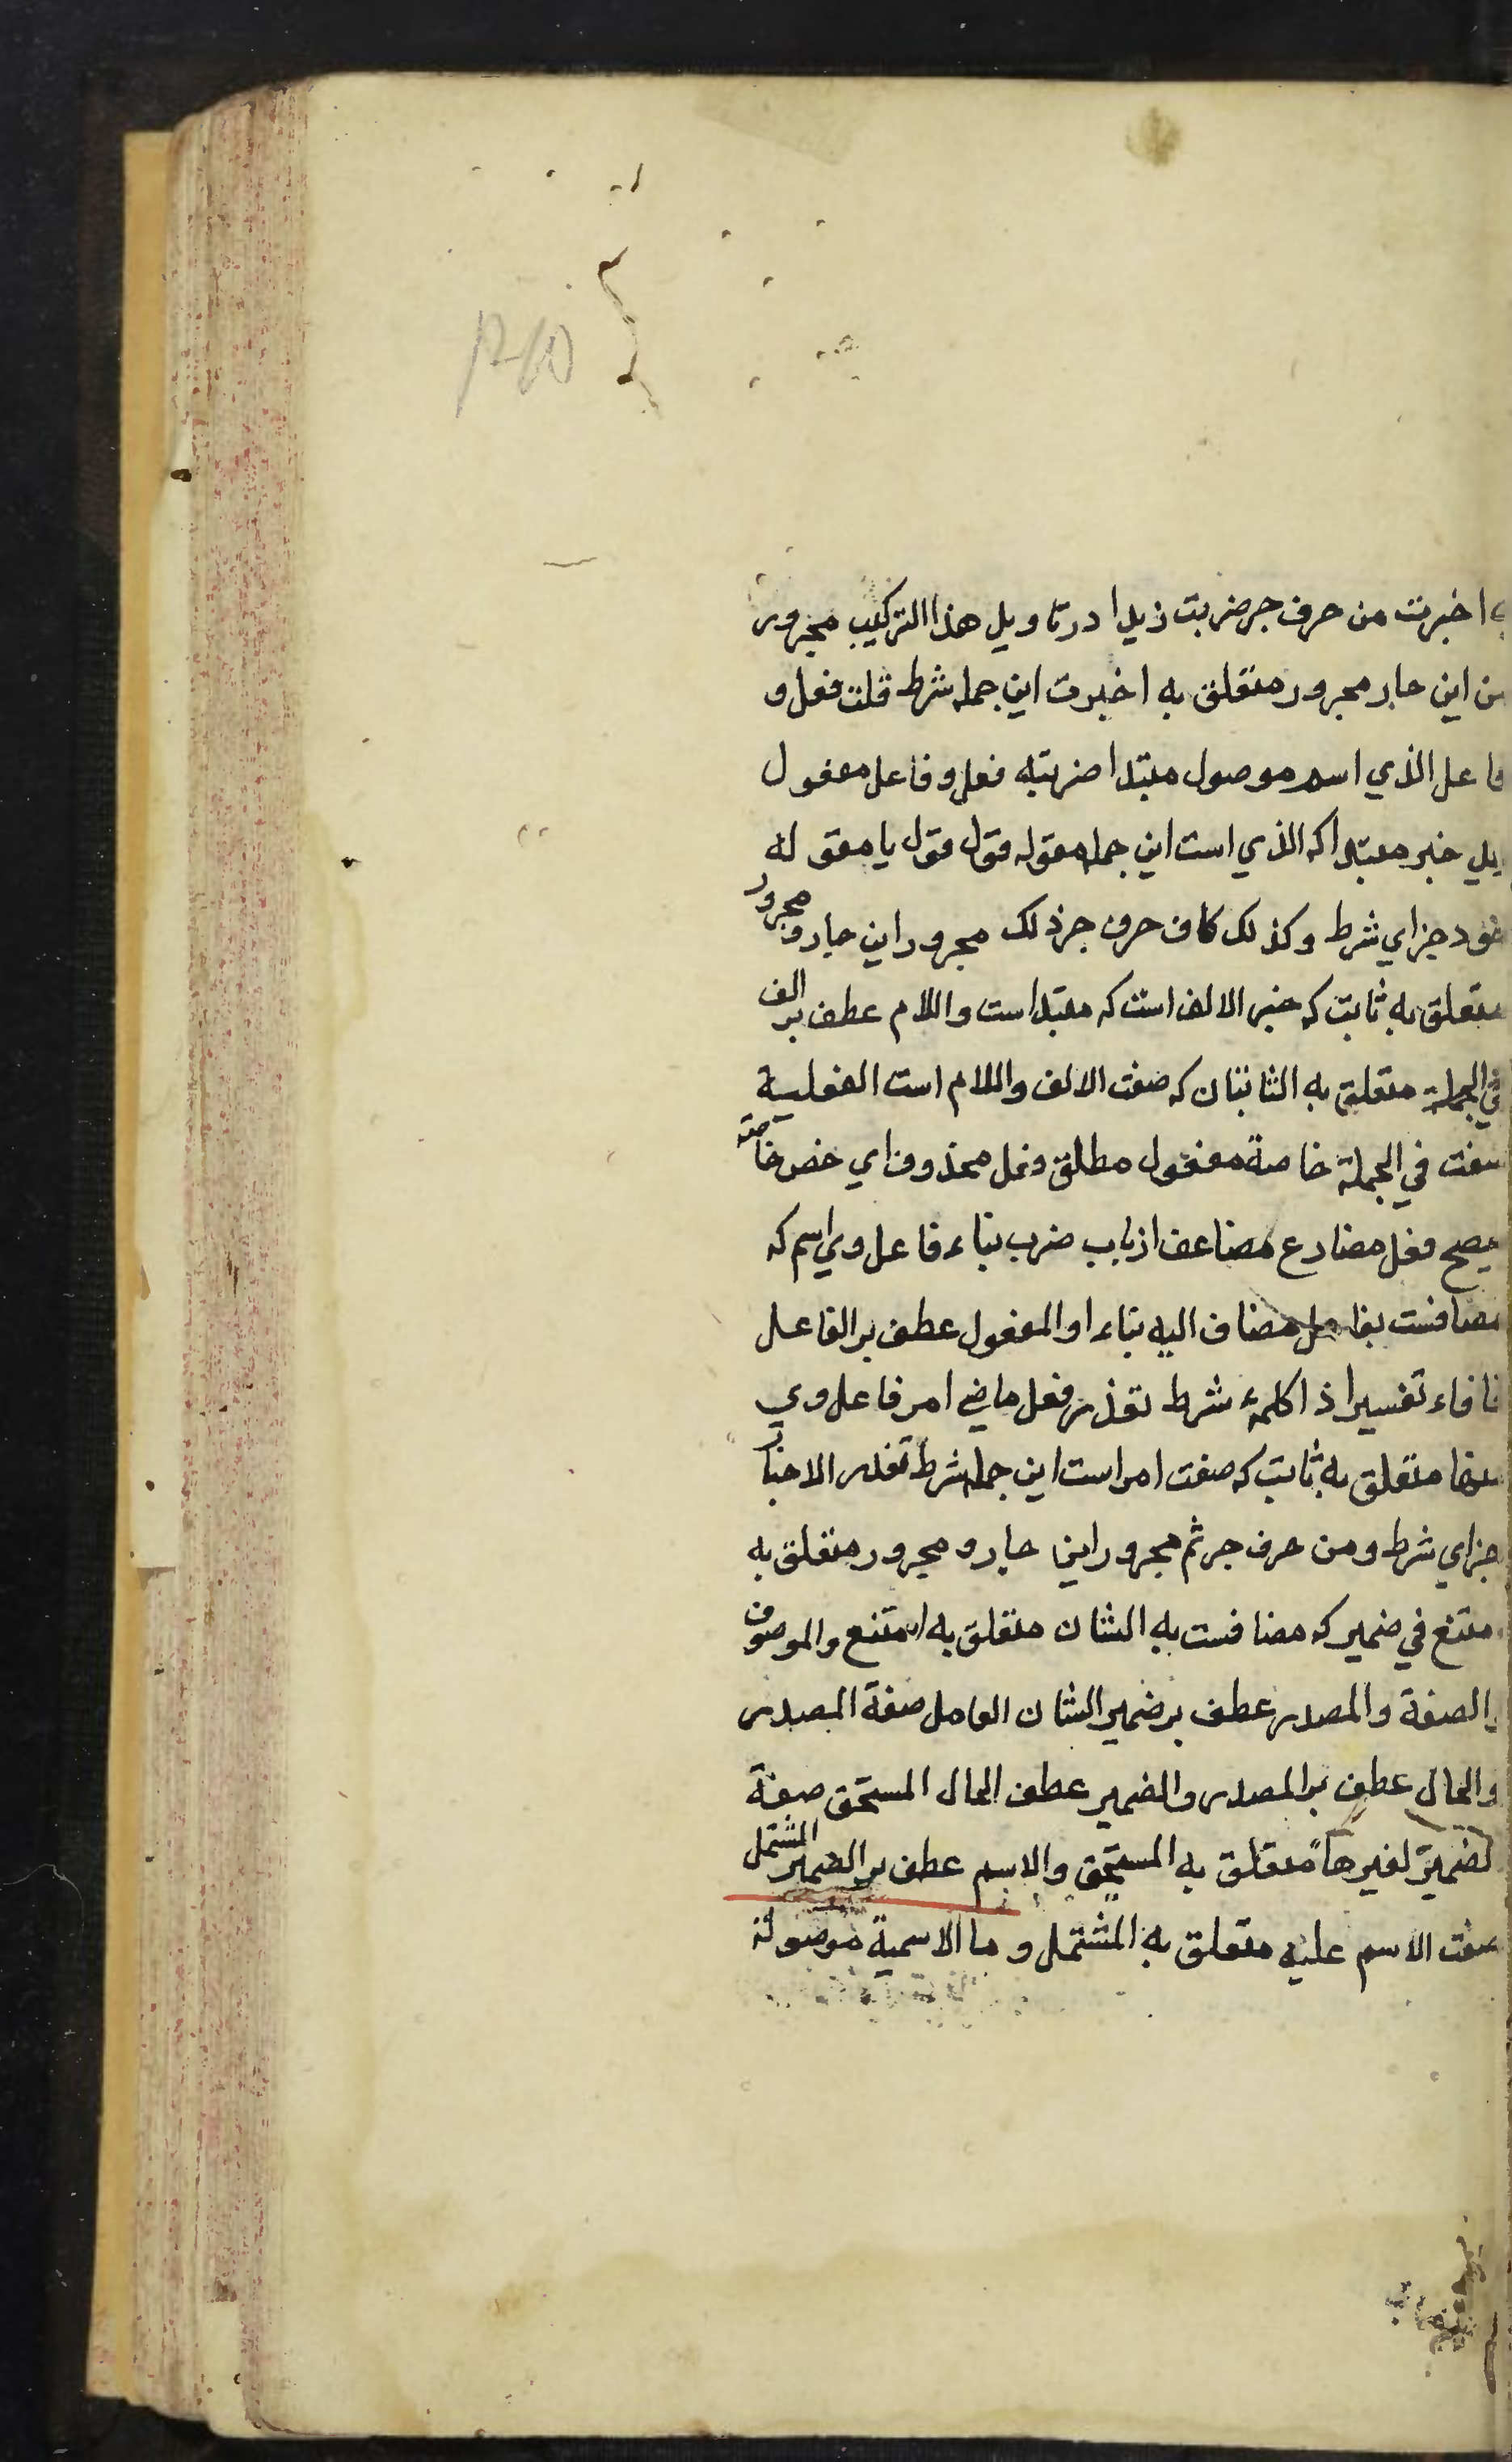 اخبرت من حرف جر ضربت زيدا در تاويل هذا التركيب مجرور
من اين جار مجرور متعلق به اخبرت اين جمله شرط قلت فعل و
فاعل الذي اسم موصول مبتدا ضربته فعل و فاعل مفعول
خبر مبتدا كه الذي است اين جمله مقوله قول قول يا مقوله
خود جزاي شرط وكذلك كاف حرف جر ذلك مجرور اين جار و مجرور
متعلق به ثابت كه خبر الالف است كه مبتدا است واللام عطف بر الف
في الجملة متعلق به الثابتان كه صفت الالف واللام است الفعلية
صفت في الجملة خاصة مفعول مطلق فعل محذوف اي خص خاصة
يصح فعل مضارع مضاعف از باب ضرب بناء فاعل وي اسم كه
مضافست بفاعل مضاف اليه بناء او المفعول عطف بر الفاعل
فا فاء تفسير اذا كلمهٔ شرط تعذر فعل ماضي امر فاعل وي
منها متعلق به ثابت كه صفت امر است اين جمله شرط تعذر الاخبار
جزاي شرط ومن حرف جر ثم مجرور اين جار و مجرور متعلق به
امتنع في ضمير كه مضافست به الشان متعلق به امتنع والموصوف
والصفة والمصدر عطف بر ضمير الشان العامل صفة المصدر
والحال عطف بر المصدر والضمير عطف الحال المستحق صفة
الضمير لغيرها متعلق به المستحق والاسم عطف بر الضمير المشتمل
صفت الاسم عليه متعلق به المشتمل و ما الاسمية موصولة